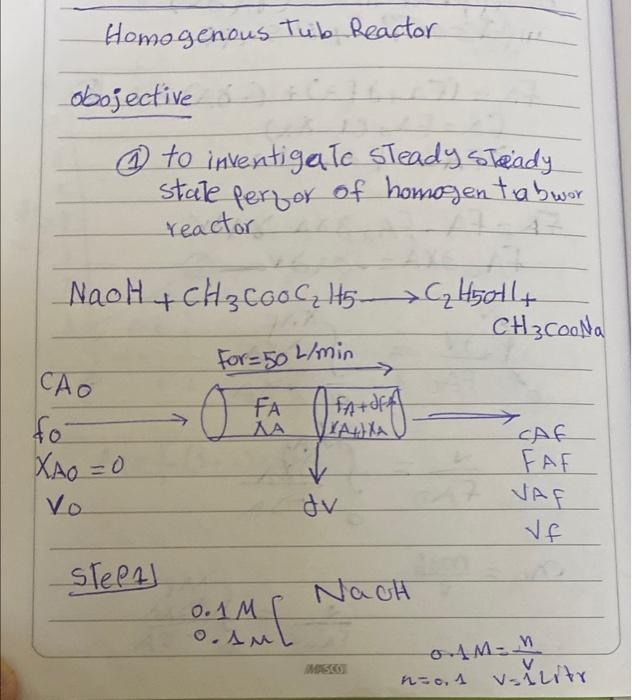 Homogenous Tub Reactor
obojective
① to inventigate steady steady
state perfor of homogen tabwor
reactor
NaOH + CH3COOC2H5 → C2H5OH +
CH3COONa
For=50 L/min
CAO
FA
FA+dFA
XA
XA+dXA
fo
XAO = 0
Vo
dV
CAF
FAF
VAF
Vf
Step 1)
NaOH
0.1M
0.1M
0.1M = n/v
n=0.1 V=1Litr
MASCO